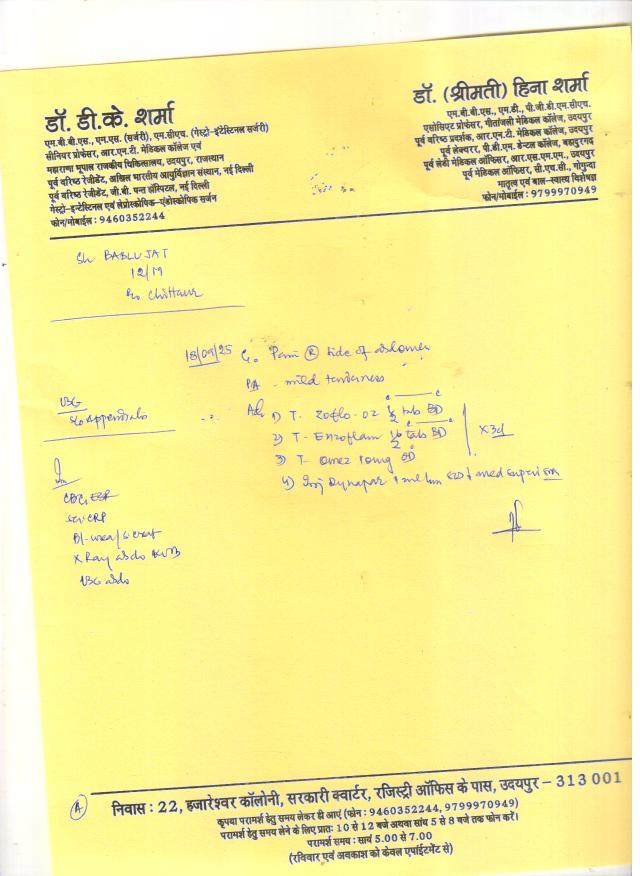 डॉ. डी.के. शर्मा
एम.बी.बी.एस., एम.एस. (सर्जरी), एम.सीएच. (गेस्ट्रो-इंटेस्टिनल सर्जरी)
सीनियर प्रोफेसर, आर.एन.टी. मेडिकल कॉलेज एवं
महाराणा भूपाल राजकीय चिकित्सालय, उदयपुर, राजस्थान
पूर्व वरिष्ठ रेजीडेंट, अखिल भारतीय आयुर्विज्ञान संस्थान, नई दिल्ली
पूर्व वरिष्ठ रेजीडेंट, जी.बी. पन्त हॉस्पिटल, नई दिल्ली
गेस्ट्रो-इन्टेस्टिनल एवं लेप्रोस्कोपिक-एंडोस्कोपिक सर्जन
फोन/मोबाईल : 9460352244
डॉ. (श्रीमती) हिना शर्मा
एम.बी.बी.एस., एम.डी., पी.जी.डी.एम.सीएच.
एसोसिएट प्रोफेसर, गीतांजली मेडिकल कॉलेज, उदयपुर
पूर्व वरिष्ठ प्रदर्शक, आर.एन.टी. मेडिकल कॉलेज, उदयपुर
पूर्व लेक्चरर, पी.डी.एम. डेन्टल कॉलेज, बहादुरगढ़
पूर्व लेडी मेडिकल ऑफिसर, आर.एस.एम.एम., उदयपुर
पूर्व मेडिकल ऑफिसर, सी.एच.सी., गोगुन्दा
मातृत्व एवं बाल-स्वास्थ्य विशेषज्ञ
फोन/मोबाईल : 9799970949
Sh BABLU JAT
12/M
R/o Chittaur
18/09/25 C/o Pain Ⓡ side of abdomen
PA - mild tenderness
USG
S/o Appendido
Adv 1) T. Zoflo-OZ ½ tab BD
2) T- Enzoflam ½ tab BD
3) T- Omez 10mg OD
X 3d
4) Inj Dynapar 1 ml Im
CBC, ESR
S. CRP
Bl-urea/S creat
X Ray abdo KUB
USG abdo
Ⓐ
निवास : 22, हजारेश्वर कॉलोनी, सरकारी क्वार्टर, रजिस्ट्री ऑफिस के पास, उदयपुर - 313 001
कृपया परामर्श हेतु समय लेकर ही आएं (फोन : 9460352244, 9799970949)
परामर्श हेतु समय लेने के लिए प्रातः 10 से 12 बजे अथवा सायं 5 से 8 बजे तक फोन करें।
परामर्श समय : सायं 5.00 से 7.00
(रविवार एवं अवकाश को केवल एपॉईंटमेंट से)